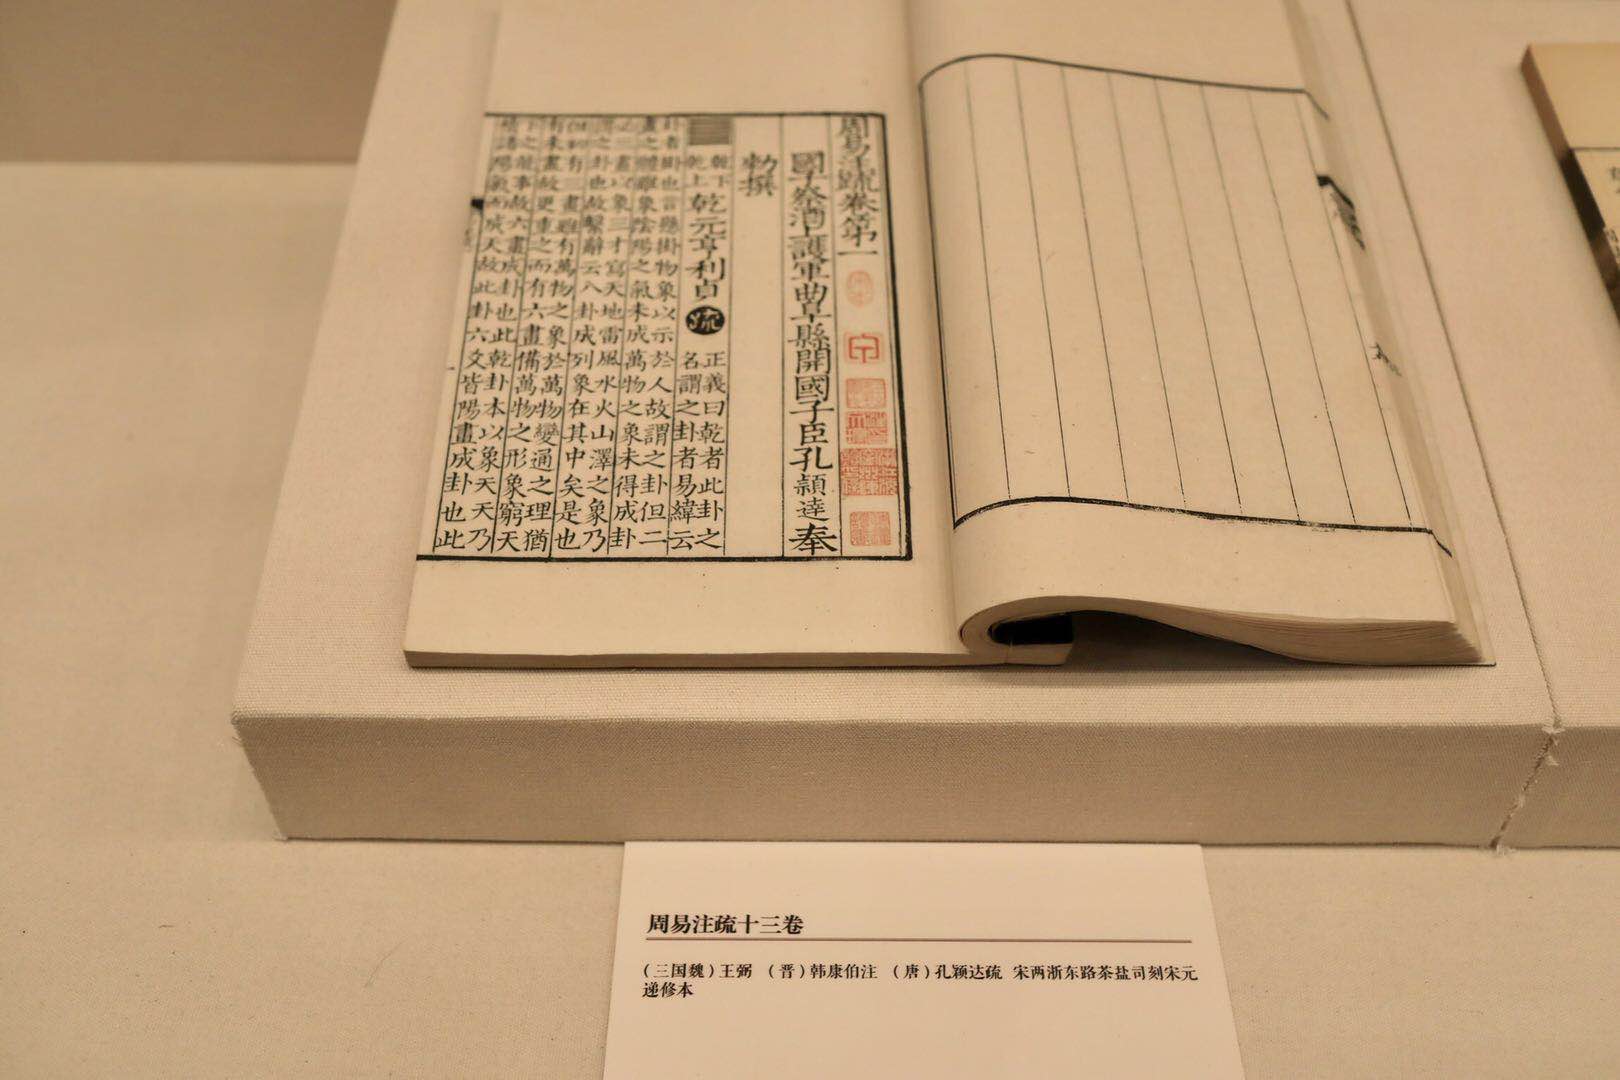 周易注疏卷第一
國子祭酒上護軍曲阜縣開國子臣孔頴達奉
勑撰
乾下
乾上
乾元亨利貞
疏
正義曰乾者此卦之
名謂之卦者易緯云
卦者掛也言懸掛物象以示於人故謂之卦但二
畫之體雖象陰陽之氣未成萬物之象未得成卦
必三畫以象三才寫天地雷風水火山澤之象乃
謂之卦也故繫辭云八卦成列象在其中矣是也
但初有三畫雖有萬物之象於萬物變通之理猶
有未盡故更重之而有六畫備萬物之形象窮天
下之能事故六畫成卦也此乾卦本以象天天乃
積諸陽氣而成天故此卦六爻皆陽畫成卦也此
一
周易注疏十三卷
（三国魏）王弼 （晋）韩康伯注 （唐）孔颖达疏 宋两浙东路茶盐司刻宋元
递修本